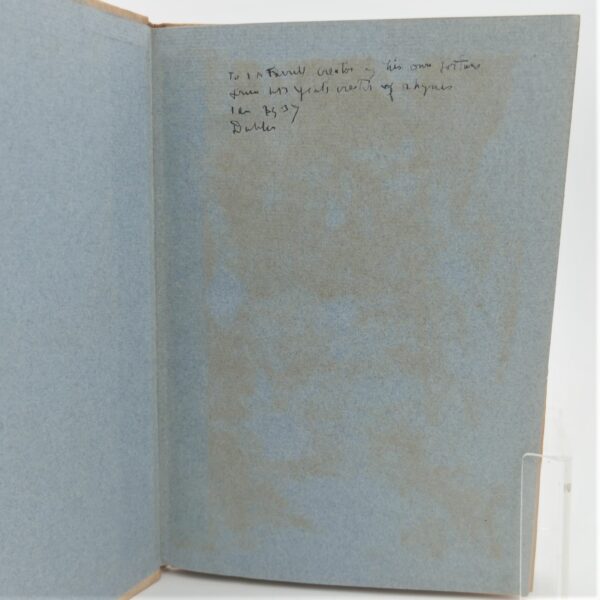 To J M Farrell creator of his own fortune
from WB Yeats creator of rhymes
Jan 29 37
Dublin